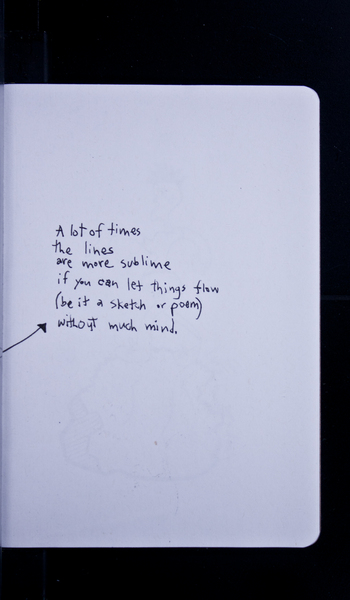 A lot of times
the lines
are more sublime
if you can let things flow
(be it a sketch or poem)
without much mind.